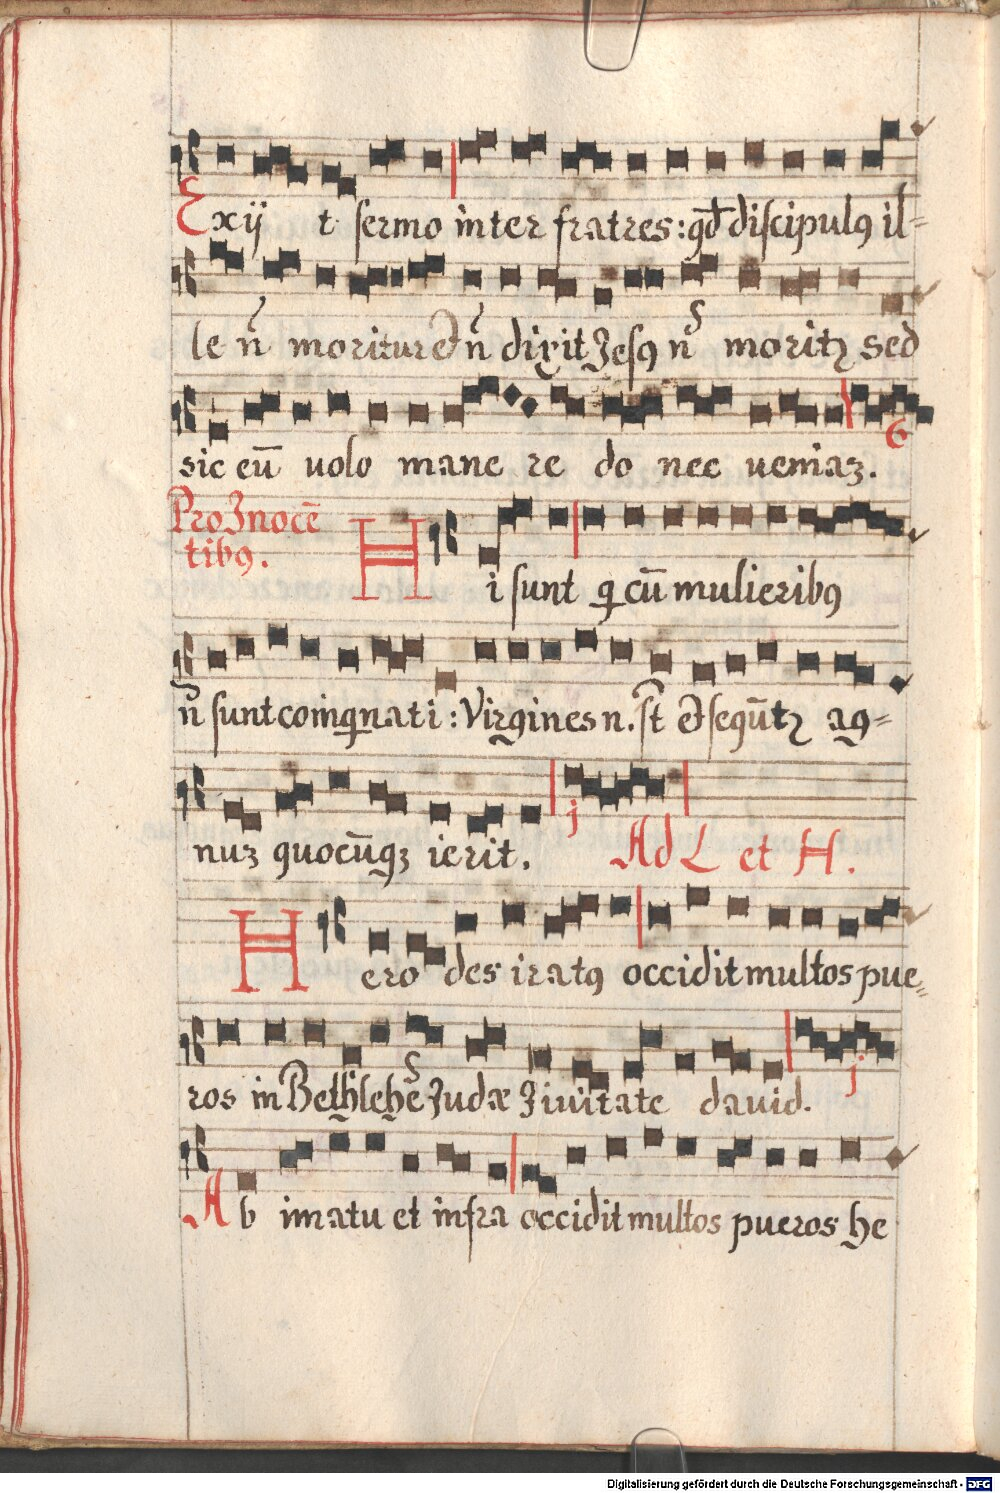 Exij t sermo inter fratres: qd discipulꝰ il=
le n̄ moritur et n̄ dixit Jesꝰ n̄ moritꝛ sed
sic eū uolo mane re do nec ueniaz.
G
Pro Inocē
tibꝰ.
Hi sunt q cū mulieribꝰ
n̄ sunt coinqnati: Virgines n. st et sequūtꝛ ag=
nuz quocūqꝫ ierit.
j
Ad L et H.
Hero des iratꝰ occidit multos pue=
ros in Bethlehē Judæ Ziuitate dauid.
j
Ab imatu et infra occidit multos pueros he
Digitalisierung gefördert durch die Deutsche Forschungsgemeinschaft - DFG